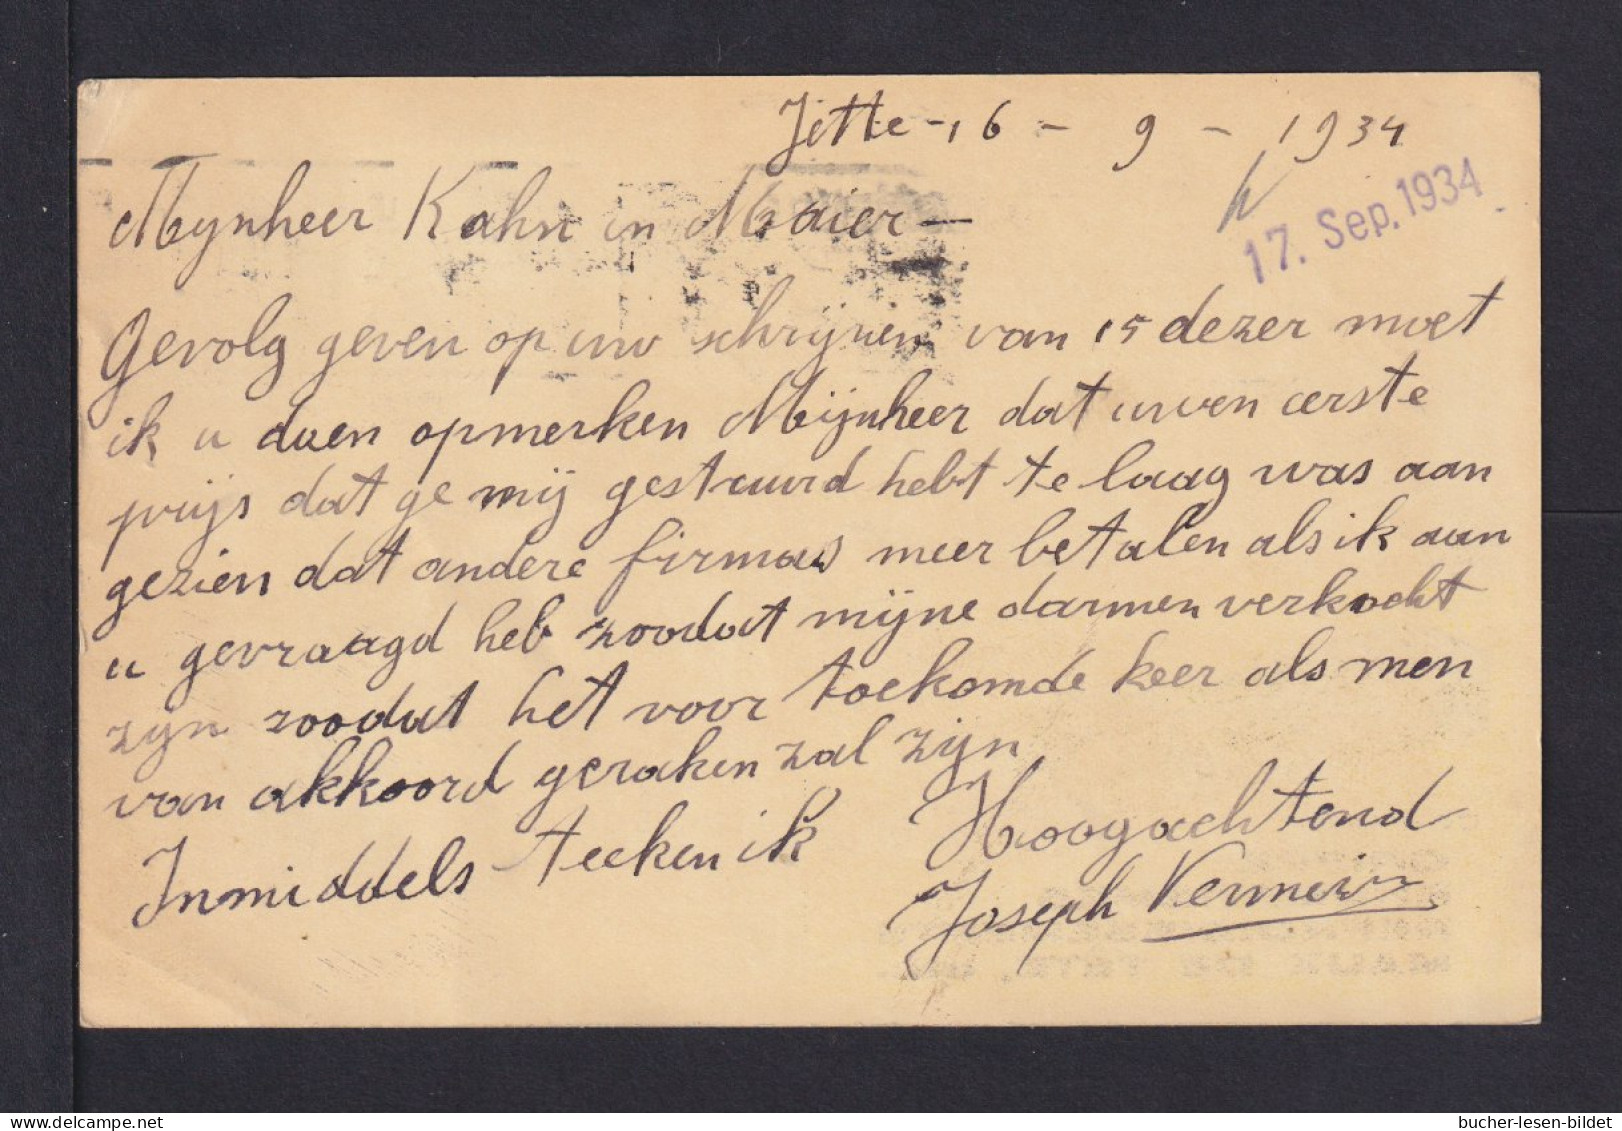 Jette - 16 - 9 - 1934
17. Sep. 1934
Mynheer Kahn in Maier -
Gevolg geven op uw schrijven van 15 dezer moet
ik u doen opmerken Mijnheer dat uwen eerste
prijs dat ge mij gestuurd hebt te laag was aan
gezien dat andere firmas meer betalen als ik aan
u gevraagd heb zoodat mijne darmen verkocht
zijn zoodat het voor toekomde keer als men
van akkoord geraken zal zijn
Inmiddels teeken ik
Hoogachtend
Joseph
bucher-lesen-bildet